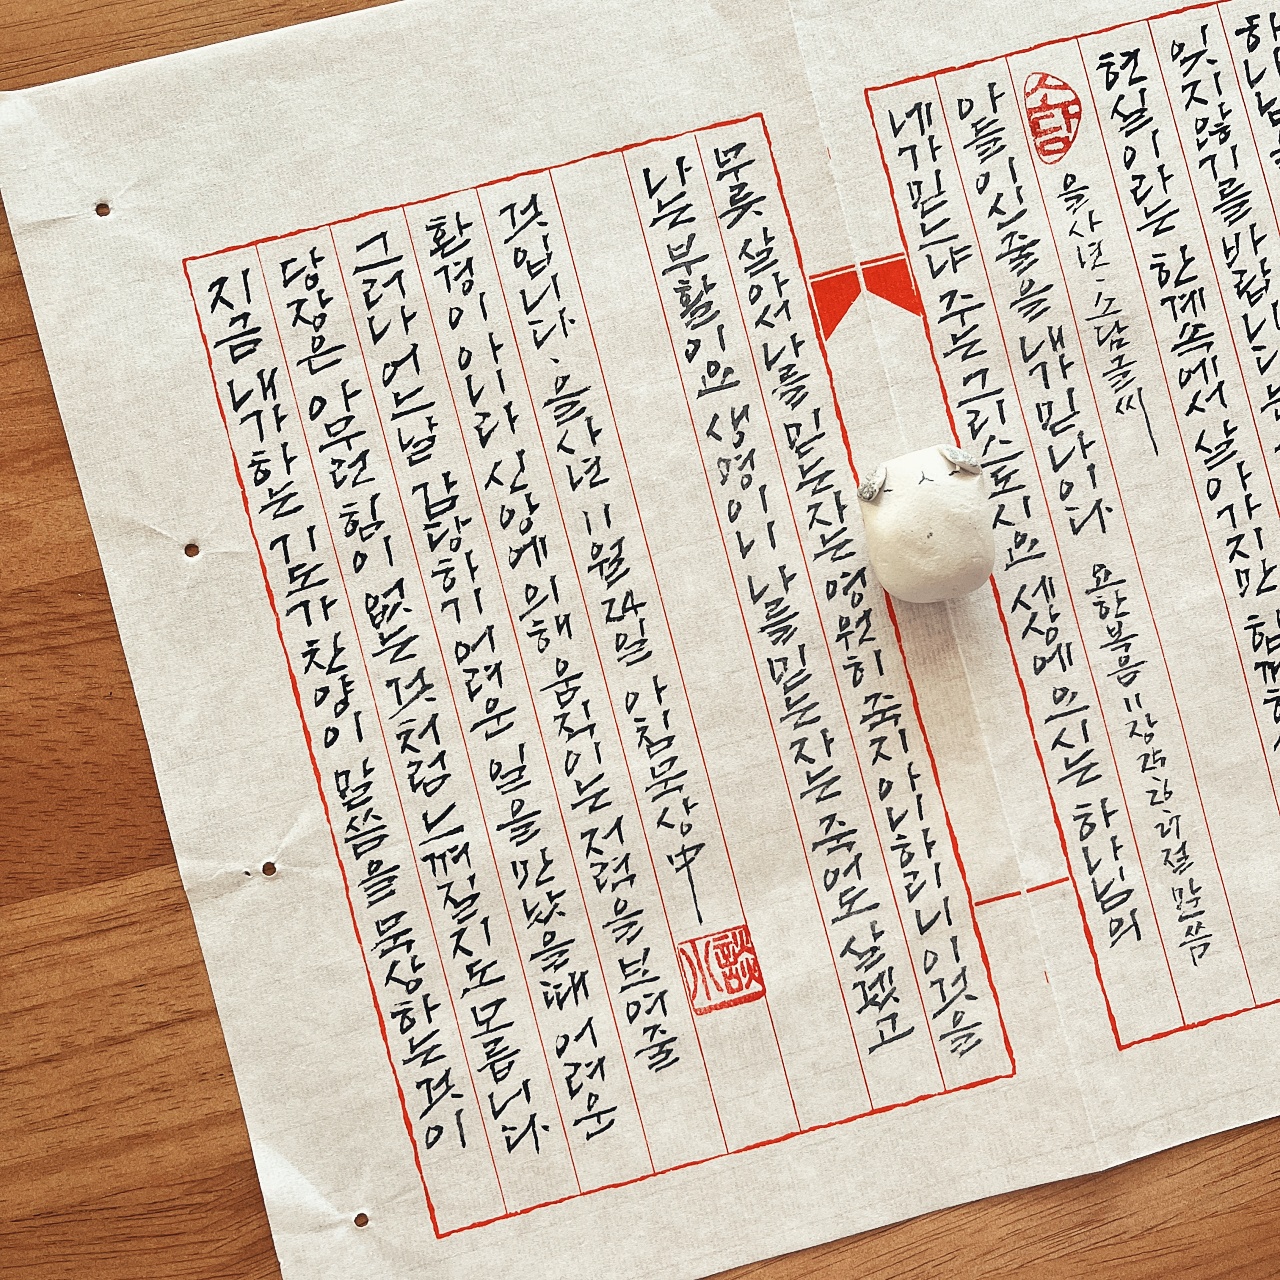 지금 내가 하는 기도가 찬양이 말씀을 묵상하는 것이
당장은 아무런 힘이 없는 것처럼 느껴질지도 모릅니다
그러나 어느날 감당하기 어려운 일을 만났을때 어려운
환경이 아니라 신앙에 의해 움직이는 저력을 보여줄
것입니다. 을사년 11월 24일 아침묵상中
小談
나는 부활이요 생명이니 나를 믿는자는 죽어도 살겠고
무릇 살아서 나를 믿는자는 영원히 죽지 아니하리니 이것을
네가 믿느냐 주는 그리스도시요 세상에 오시는 하나님의
아들이신줄을 내가 믿나이다 요한복음 11장 25, 26, 27절 말씀
소담
을사년.소담글씨
현실이라는 한계속에서 살아가지만 함께하
잊지않기를 바랍니다
하나님